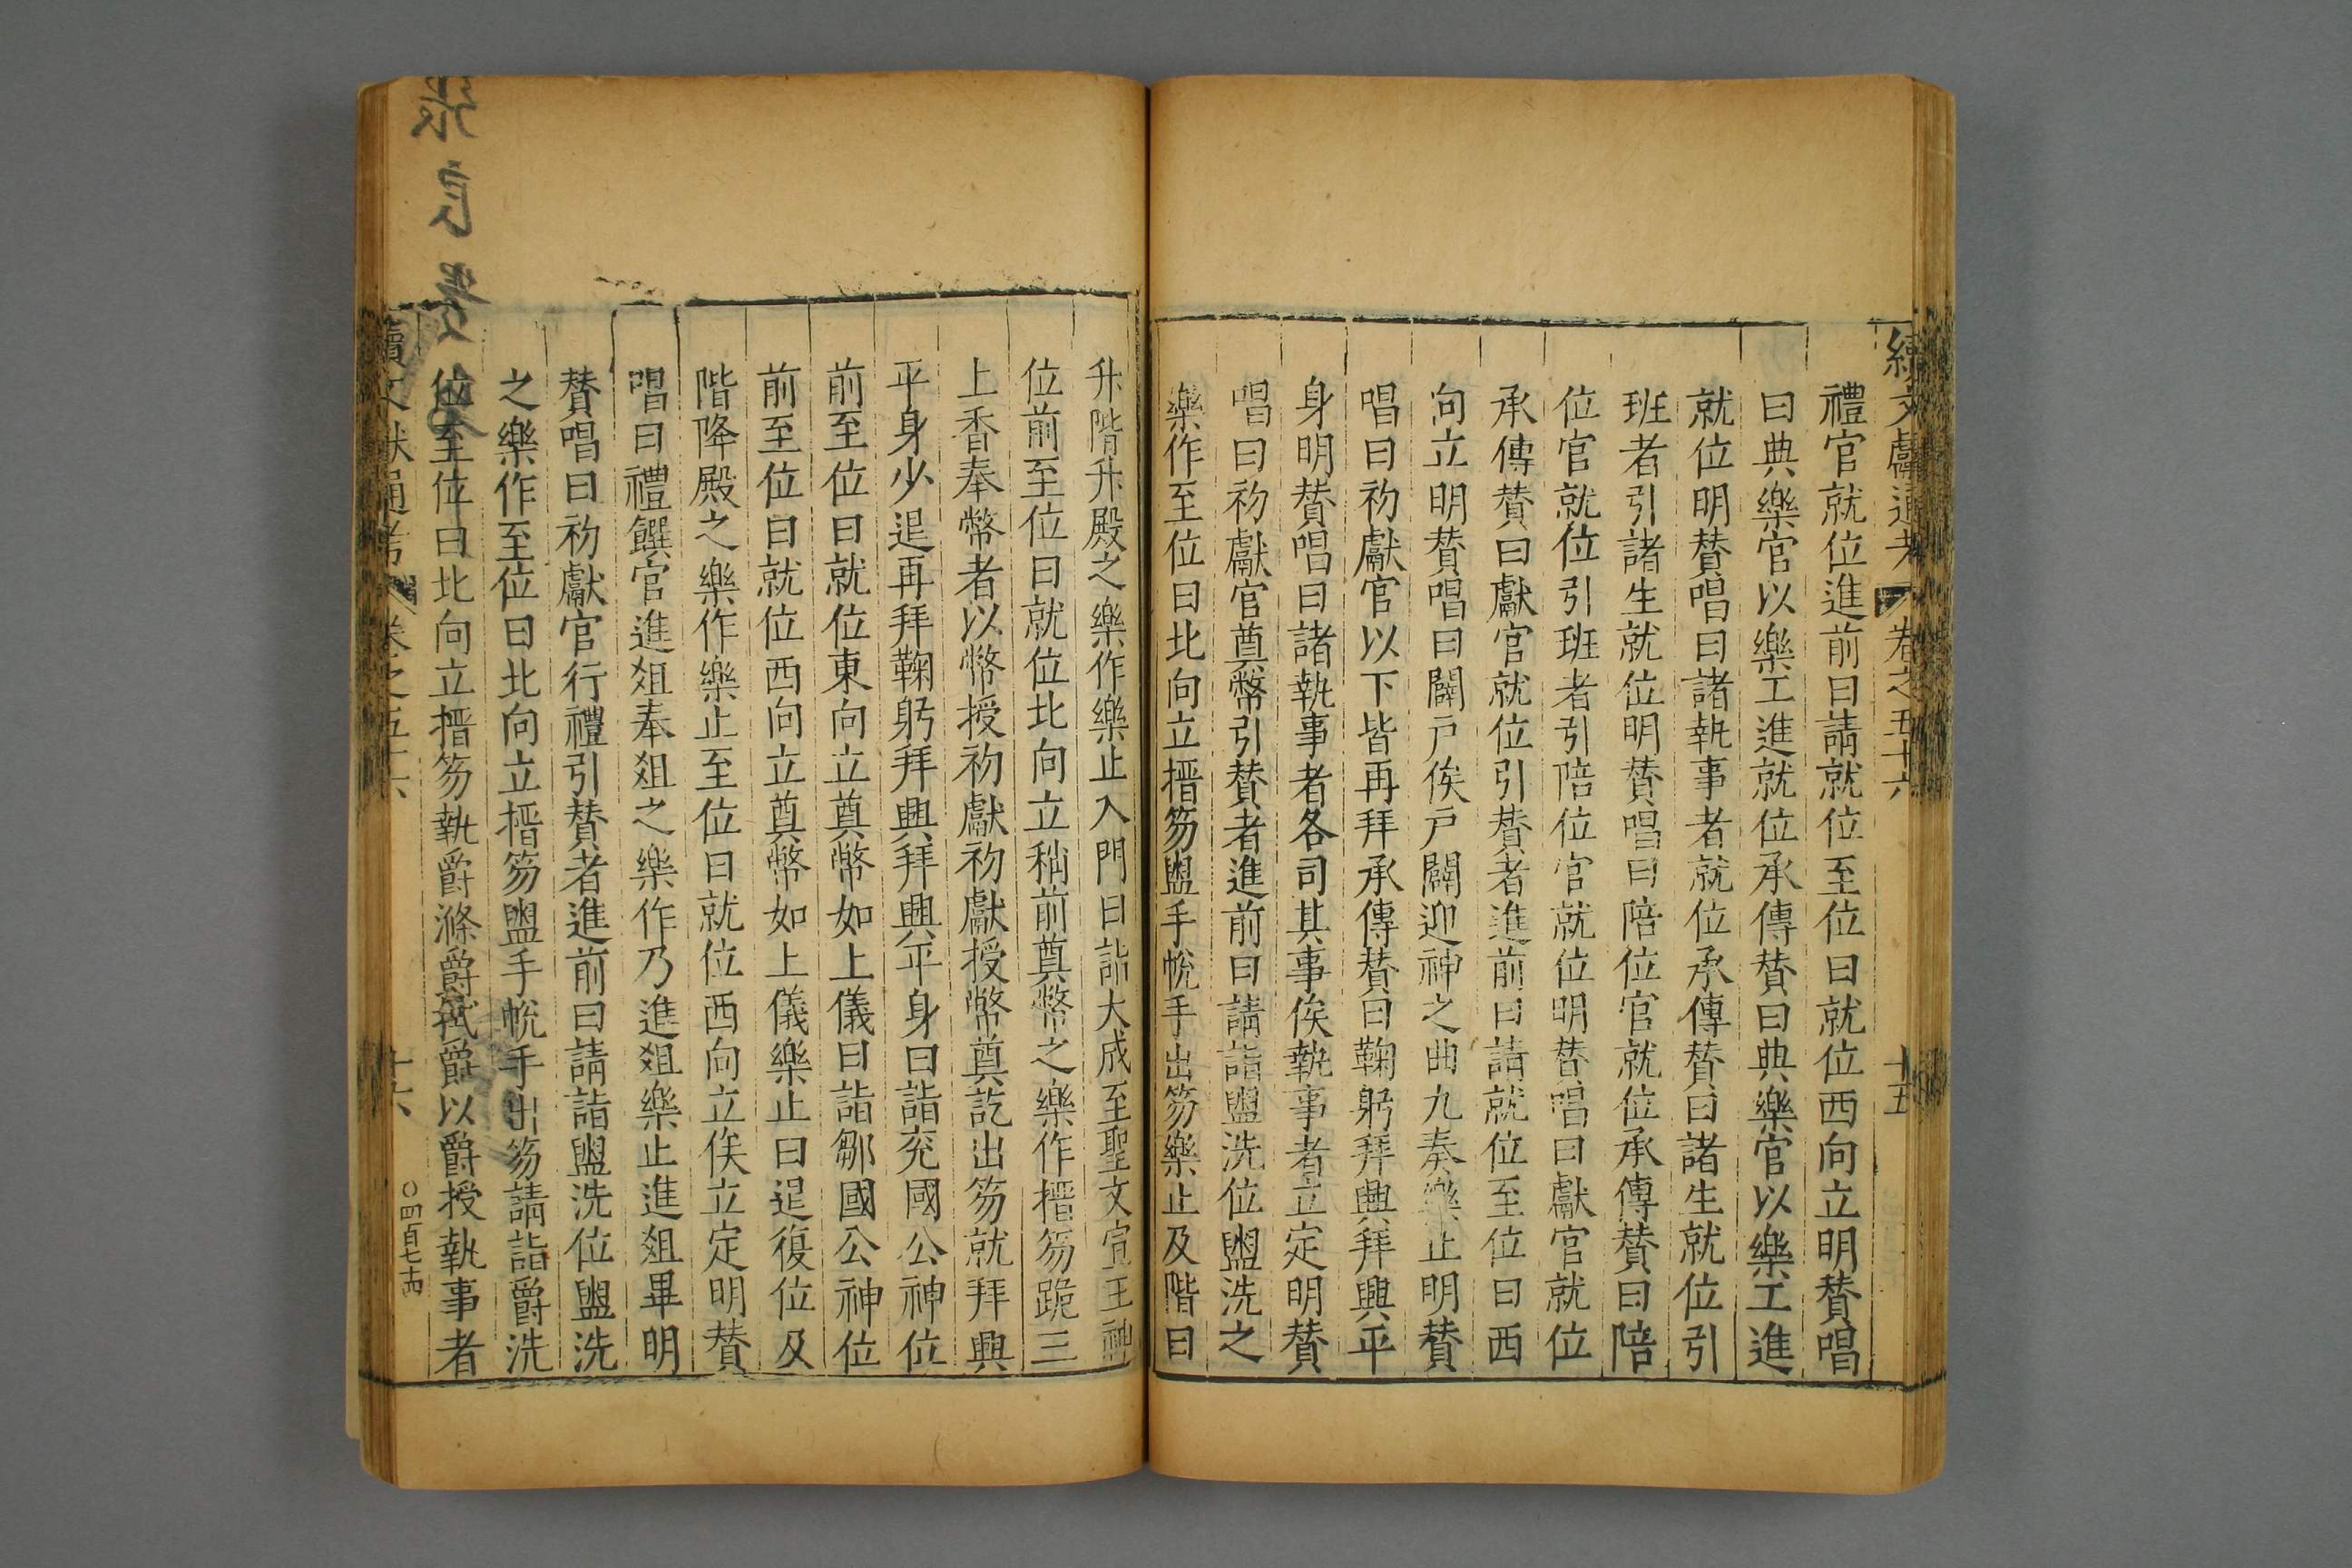 續文獻通考 卷之五十六 十五
禮官就位進前曰請就位至位曰就位西向立明賛唱
曰典樂官以樂工進就位承傳賛曰典樂官以樂工進
就位明賛唱曰諸執事者就位承傳賛曰諸生就位引
班者引諸生就位明賛唱曰陪位官就位承傳賛曰陪
位官就位引班者引陪位官就位明賛唱曰獻官就位
承傳賛曰獻官就位引賛者進前曰請就位至位曰西
向立明賛唱曰闢戸俟戸闢迎神之曲九奏樂止明賛
唱曰初獻官以下皆再拜承傳賛曰鞠躬拜興拜興平
身明賛唱曰諸執事者各司其事俟執事者立定明賛
唱曰初獻官奠幣引賛者進前曰請詣盥洗位盥洗之
樂作至位曰北向立搢笏盥手帨手出笏樂止及階曰
升階升殿之樂作樂止入門曰詣大成至聖文宣王神
位前至位曰就位北向立稍前奠幣之樂作搢笏跪三
上香奉幣者以幣授初獻初獻授幣奠訖出笏就拜興
平身少退再拜鞠躬拜興拜興平身曰詣兖國公神位
前至位曰就位東向立奠幣如上儀曰詣鄒國公神位
前至位曰就位西向立奠幣如上儀樂止曰退復位及
階降殿之樂作樂止至位曰就位西向立俟立定明賛
唱曰禮饌官進俎奉俎之樂作乃進俎樂止進俎畢明
賛唱曰初獻官行禮引賛者進前曰請詣盥洗位盥洗
之樂作至位曰北向立搢笏盥手帨手出笏請詣爵洗
位至位曰北向立搢笏執爵滌爵拭爵以爵授執事者
續文獻通考 卷之五十六 十六 ○四百七十四